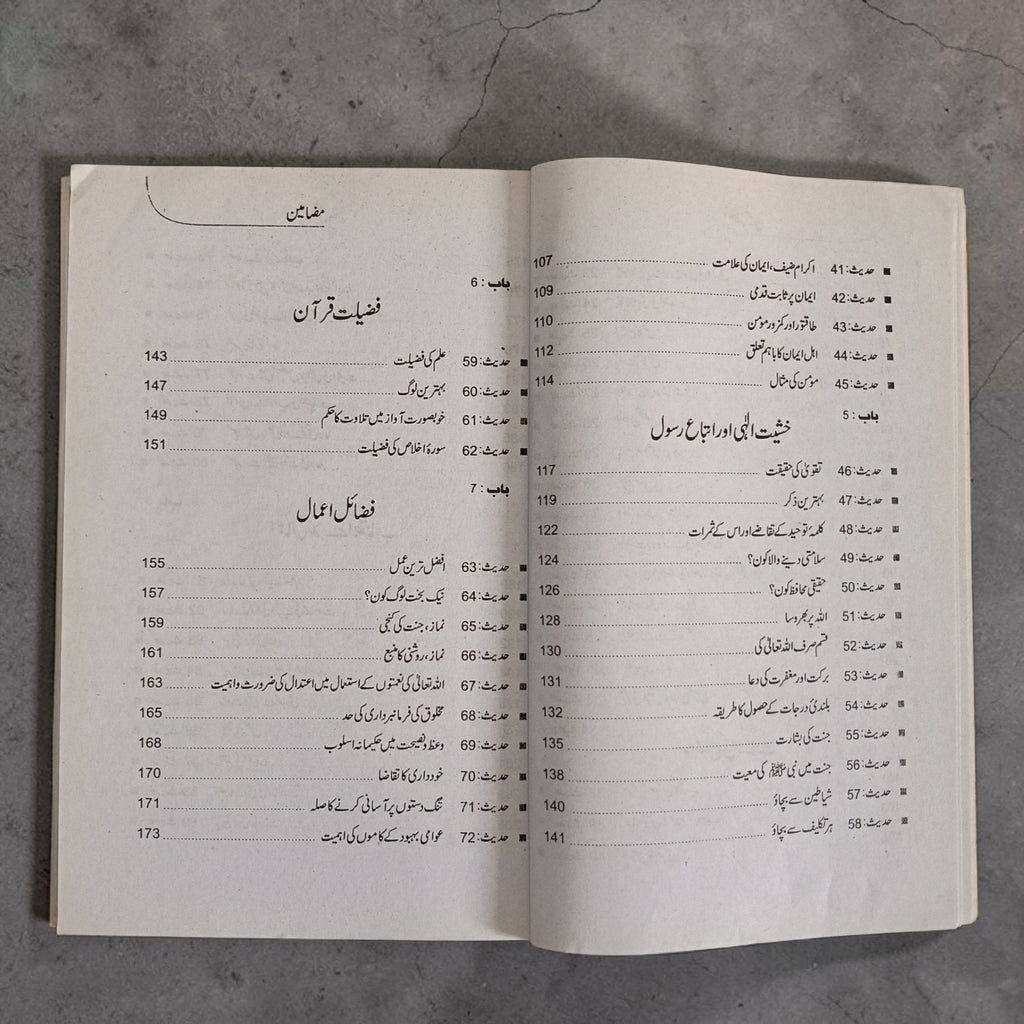 حدیث: 41 اکرام ضیف، ایمان کی علامت ........ 107
حدیث: 42 ایمان پر ثابت قدمی ........ 109
حدیث: 43 طاقتور اور کمزور مومن ........ 110
حدیث: 44 اہل ایمان کا باہم تعلق ........ 112
حدیث: 45 مومن کی مثال ........ 114
باب : 5
خشیت الٰہی اور اتباع رسول
حدیث: 46 تقویٰ کی حقیقت ........ 117
حدیث: 47 بہترین ذکر ........ 119
حدیث: 48 کلمۂ توحید کے تقاضے اور اس کے ثمرات ........ 122
حدیث: 49 سلامتی دینے والا کون؟ ........ 124
حدیث: 50 حقیقی محافظ کون؟ ........ 126
حدیث: 51 اللہ پر بھروسا ........ 128
حدیث: 52 قسم صرف اللہ تعالیٰ کی ........ 130
حدیث: 53 برکت اور مغفرت کی دعا ........ 131
حدیث: 54 بلندیٔ درجات کے حصول کا طریقہ ........ 132
حدیث: 55 جنت کی بشارت ........ 135
حدیث: 56 جنت میں نبی ﷺ کی معیت ........ 138
حدیث: 57 شیاطین سے بچاؤ ........ 140
حدیث: 58 ہر تکلیف سے بچاؤ ........ 141
مضامین
باب : 6
فضیلت قرآن
حدیث: 59 علم کی فضیلت ........ 143
حدیث: 60 بہترین لوگ ........ 147
حدیث: 61 خوبصورت آواز میں تلاوت کا حکم ........ 149
حدیث: 62 سورۂ اخلاص کی فضیلت ........ 151
باب : 7
فضائل اعمال
حدیث: 63 افضل ترین عمل ........ 155
حدیث: 64 نیک بخت لوگ کون؟ ........ 157
حدیث: 65 نماز، جنت کی کنجی ........ 159
حدیث: 66 نماز، روشنی کا منبع ........ 161
حدیث: 67 اللہ تعالیٰ کی نعمتوں کے استعمال میں اعتدال کی ضرورت و اہمیت ........ 163
حدیث: 68 مخلوق کی فرمانبرداری کی حد ........ 165
حدیث: 69 وعظ و نصیحت میں حکیمانہ اسلوب ........ 168
حدیث: 70 خودداری کا تقاضا ........ 170
حدیث: 71 تنگ دستوں پر آسانی کرنے کا صلہ ........ 171
حدیث: 72 عوامی بہبود کے کاموں کی اہمیت ........ 173